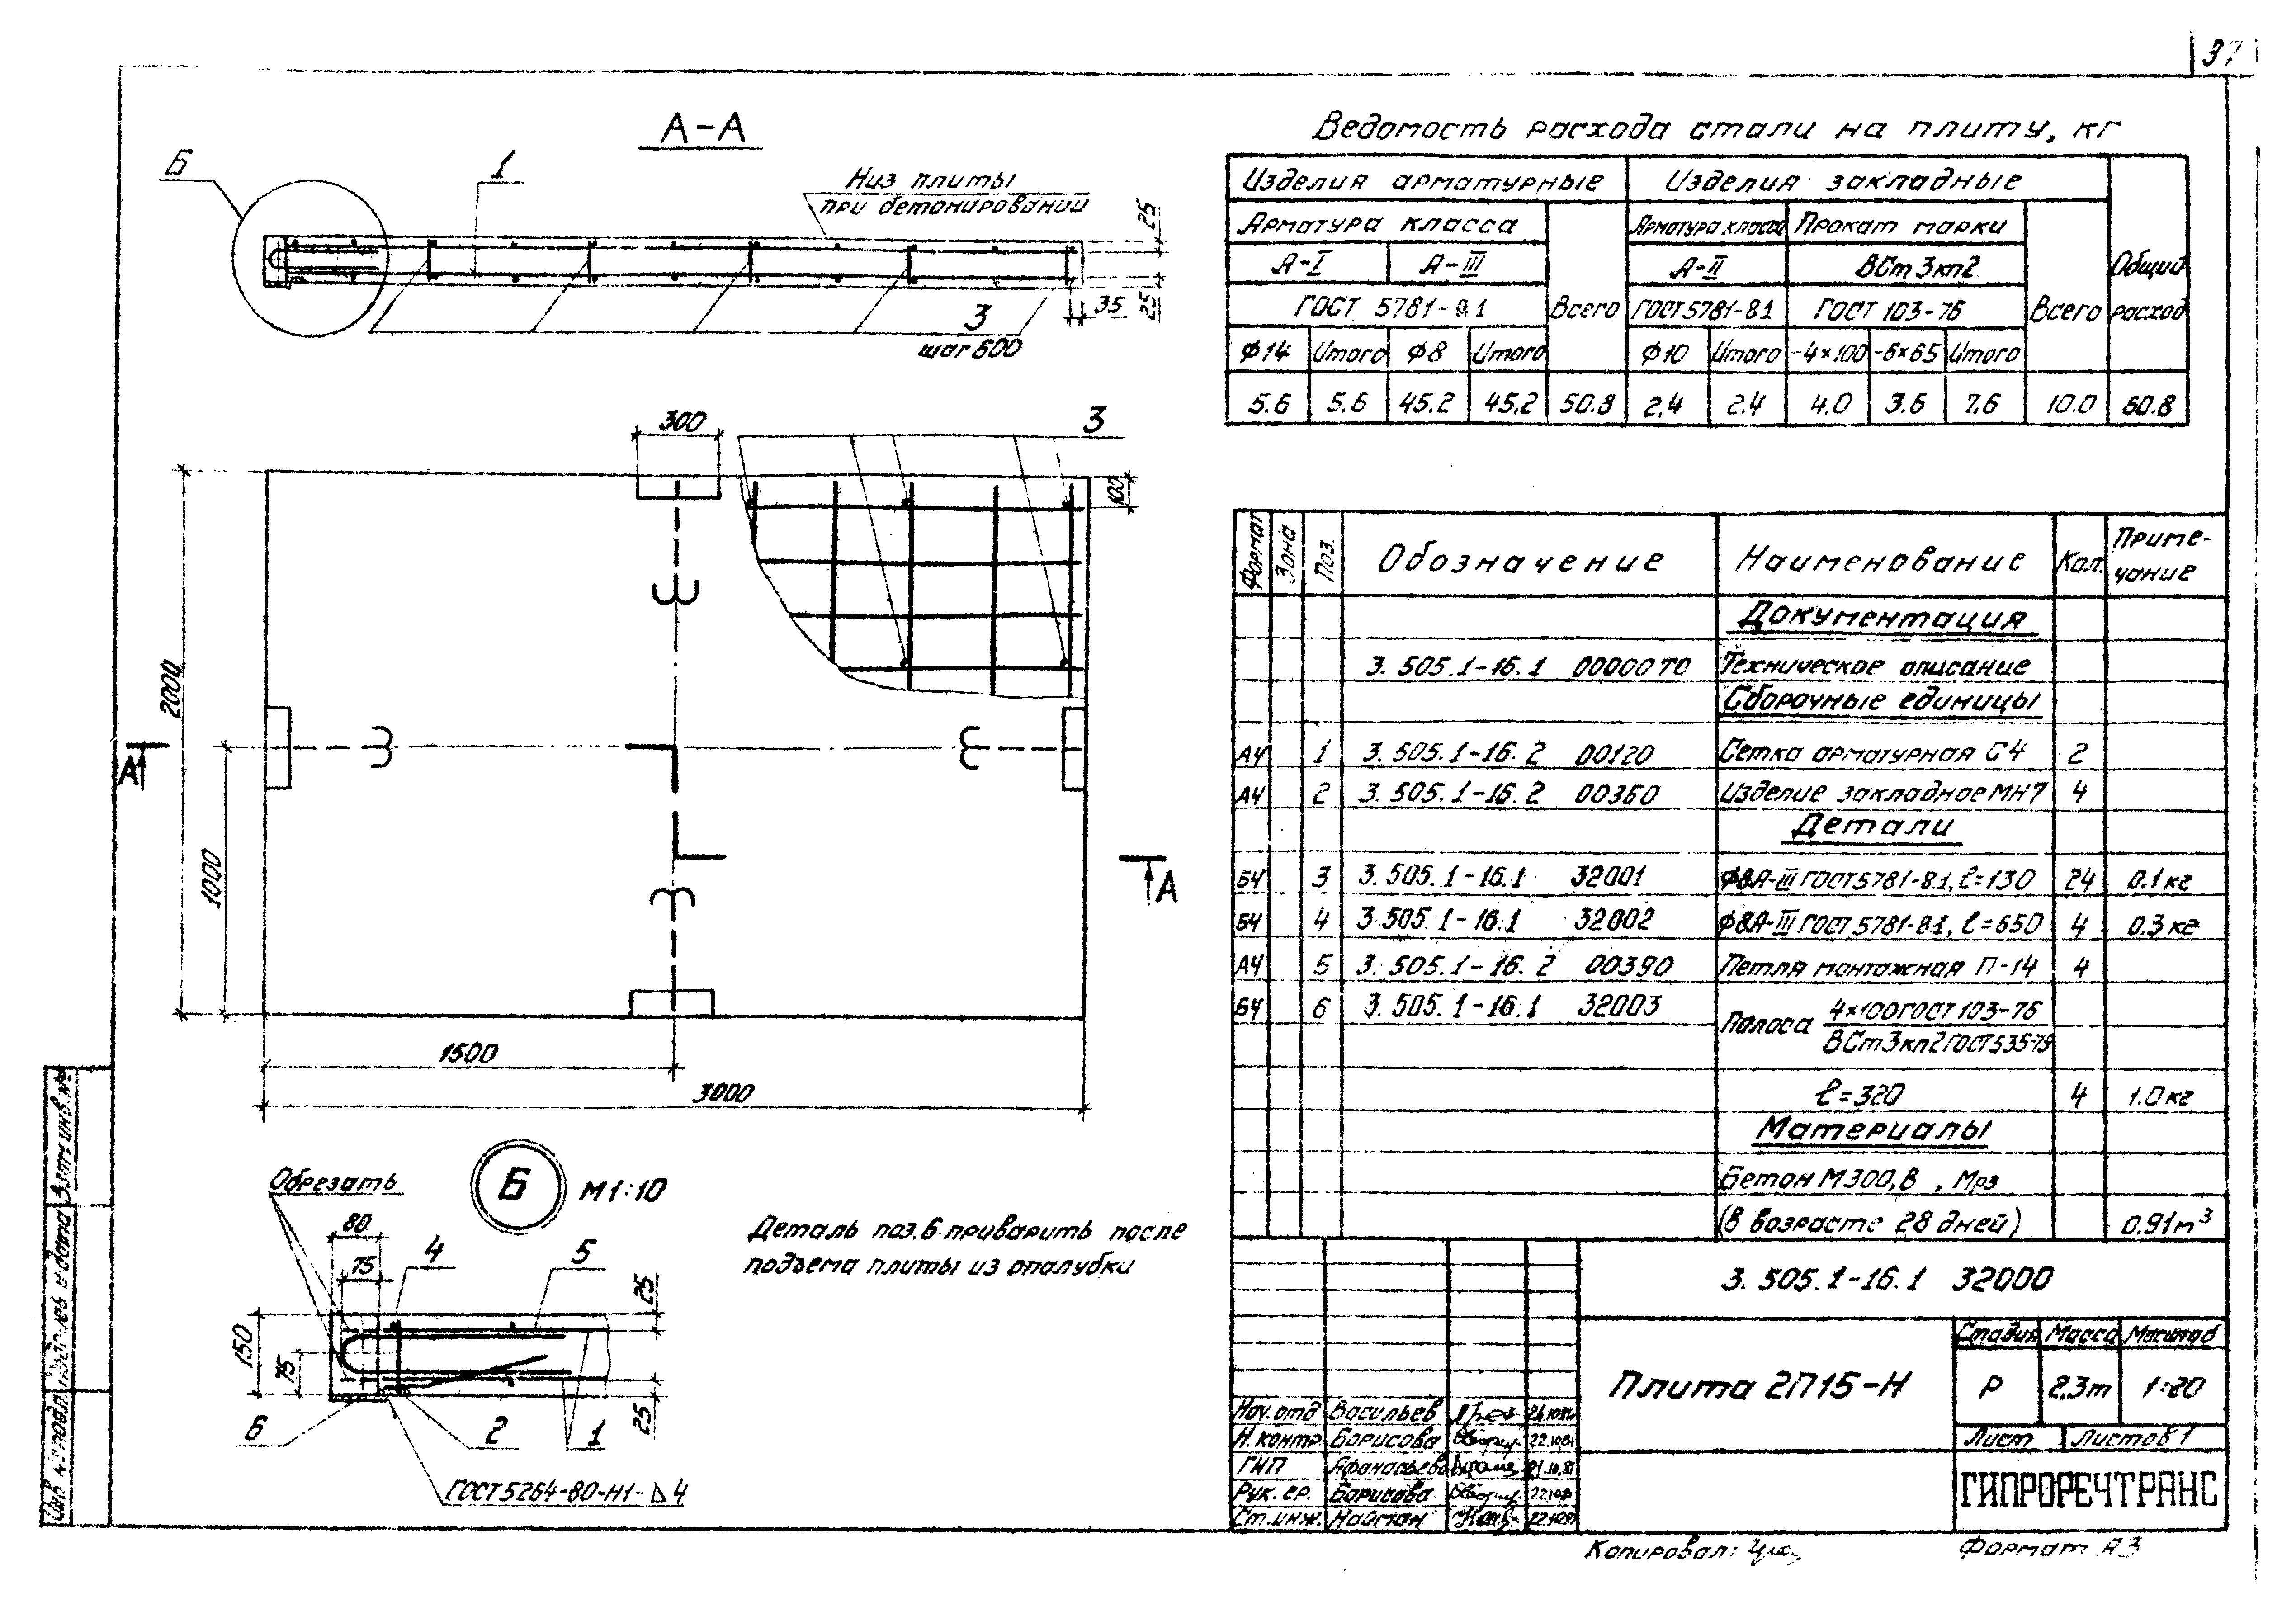 А-А
Б
1
Низ плиты
при бетонировании
25
25
35
3
шаг 600
300
3
100
2000
1000
А
А
1500
3000
Обрезать
Б
М1:10
80
75
4
5
25
150
75
25
6
2
1
ГОСТ 5264-80-Н1-⊿4
Деталь поз.6 приварить после
подъема плиты из опалубки
Ведомость расхода стали на плиту, кг
Изделия арматурные
Изделия закладные
Общий
расход
Арматура класса
Всего
Арматура класса
Прокат марки
Всего
А-I
А-III
А-II
ВСт3кп2
ГОСТ 5781-81
ГОСТ 5781-81
ГОСТ 103-76
Ф14
Итого
Ф8
Итого
Ф10
Итого
-4×100
-6×65
Итого
5.6
5.6
45.2
45.2
50.8
2.4
2.4
4.0
3.6
7.6
10.0
60.8
Формат
Зона
Поз.
Обозначение
Наименование
Кол.
Приме-
чание
Документация
3.505.1-16.1 00000ТО Техническое описание
Сборочные единицы
А4 1 3.505.1-16.2 00120 Сетка арматурная С4 2
А4 2 3.505.1-16.2 00360 Изделие закладное МН7 4
Детали
БЧ 3 3.505.1-16.1 32001 Ф8А-III ГОСТ 5781-81, ℓ=130 24 0.1кг
БЧ 4 3.505.1-16.1 32002 Ф8А-III ГОСТ 5781-81, ℓ=650 4 0.3кг
А4 5 3.505.1-16.2 00390 Петля монтажная П-14 4
БЧ 6 3.505.1-16.1 32003 Полоса 4×100 ГОСТ 103-76
ВСт3кп2 ГОСТ 535-79
ℓ=320 4 1.0кг
Материалы
Бетон М300, В , Мрз
(в возрасте 28 дней) 0.91м³
3.505.1-16.1 32000
Плита 2П15-Н
Стадия
Масса
Масштаб
Р
2,3т
1:20
Лист
Листов 1
ГИПРОРЕЧТРАНС
Нач.отд Васильев
Н.контр Борисова 22.10.81
ГИП Афанасьева
Рук.гр. Борисова 22.10.81
Ст.инж. Найман 22.10.81
Копировал:
Формат А3
Инв. № подл.
Подпись и дата
Взам. инв. №